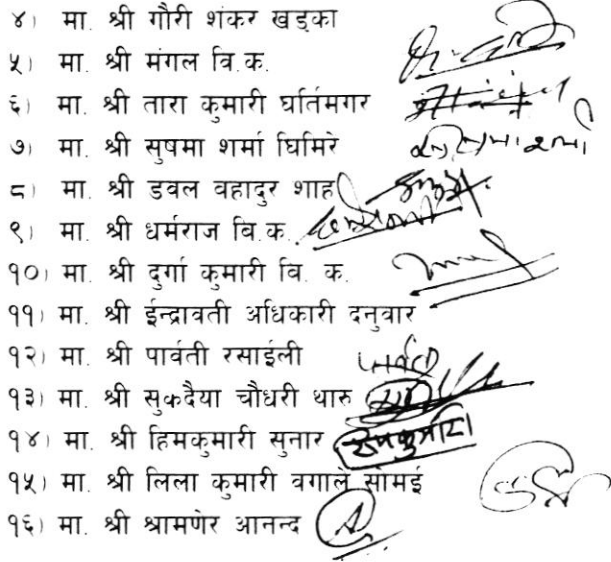 ४। मा. श्री गौरी शंकर खड्का
५। मा. श्री मंगल वि.क.
६। मा. श्री तारा कुमारी घर्तिमगर
७। मा. श्री सुषमा शर्मा घिमिरे
८। मा. श्री डवल वहादुर शाह
९। मा. श्री धर्मराज वि.क.
१०। मा. श्री दुर्गा कुमारी वि. क.
११। मा. श्री ईन्द्रावती अधिकारी दनुवार
१२। मा. श्री पार्वती रसाईली
१३। मा. श्री सुकदैया चौधरी थारु
१४। मा. श्री हिमकुमारी सुनार
१५। मा. श्री लिला कुमारी वगाले सोमई
१६। मा. श्री श्रामणेर आनन्द